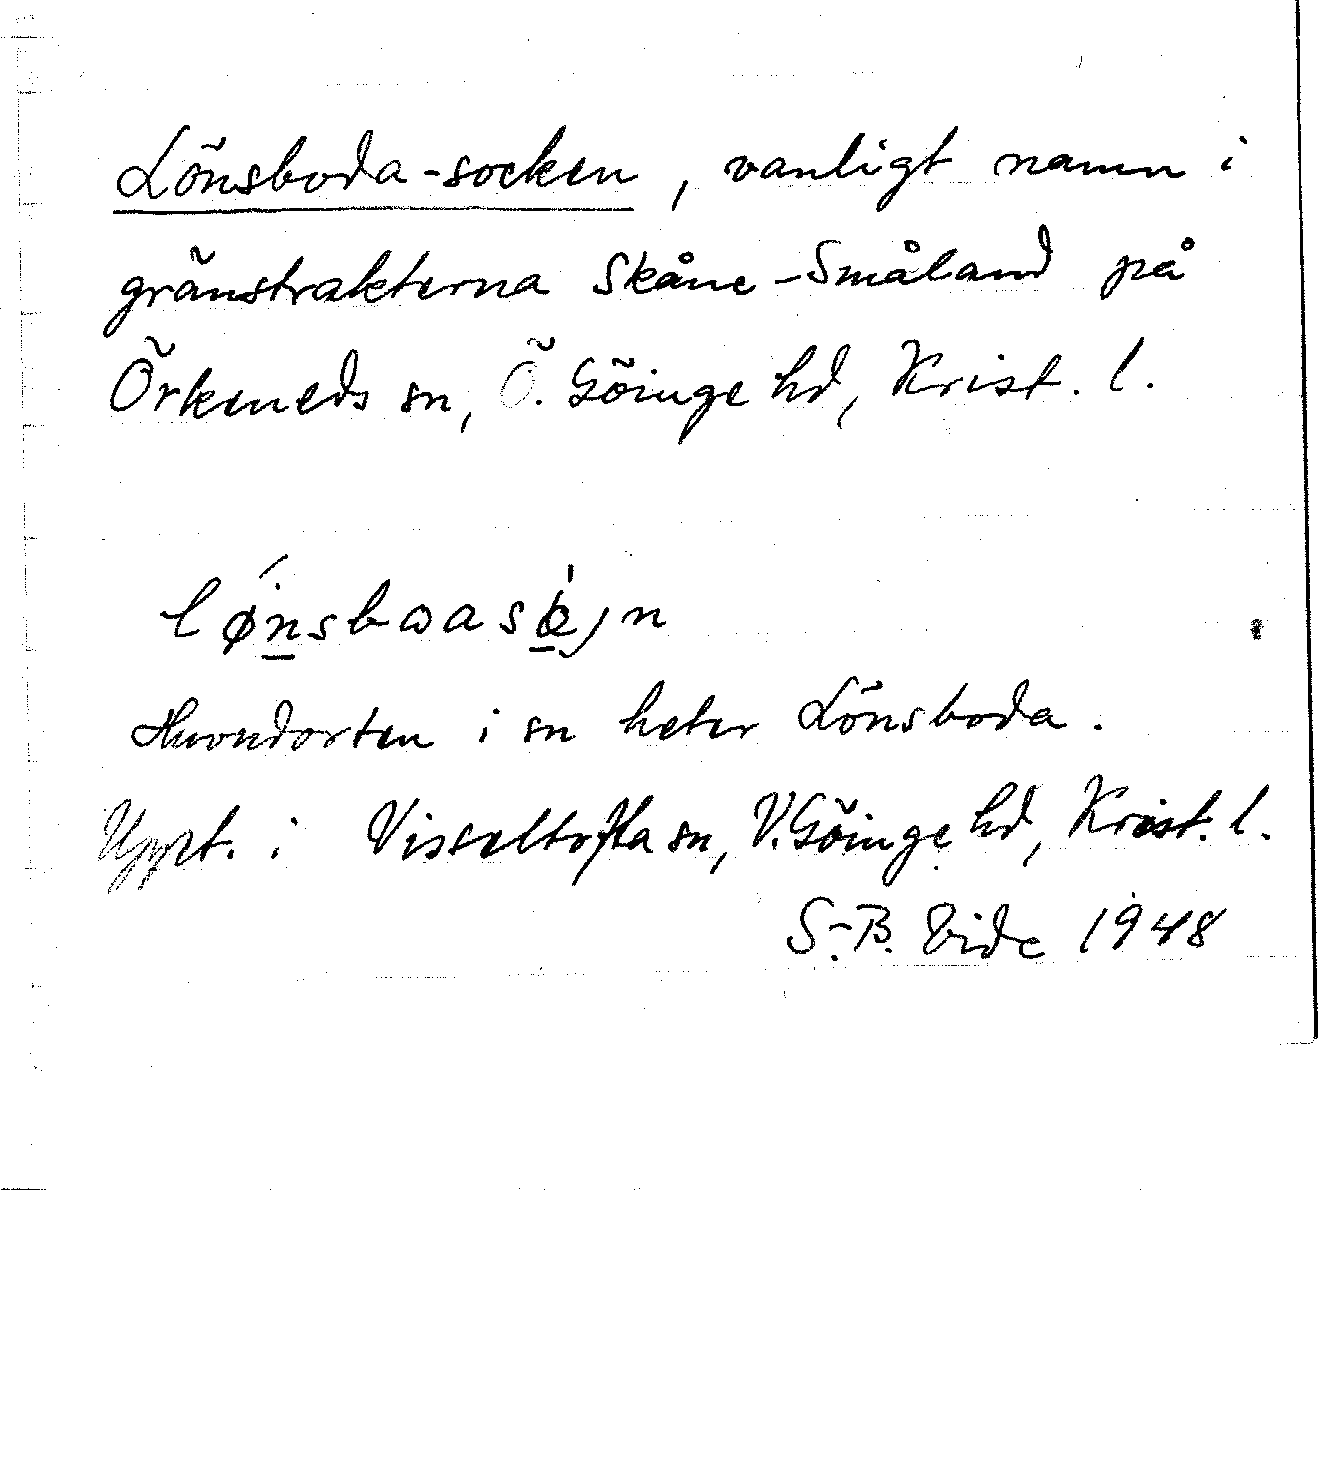 Lönsboda-socken, vanligt namn i
gränstrakterna Skåne-Småland på
Örkeneds sn, Ö. Göinge hd, Krist. l.
Huvudorten i sn heter Lönsboda.
Uppt. i Visseltofta sn, V. Göinge hd, Krist. l.
S.-B. Vide 1948